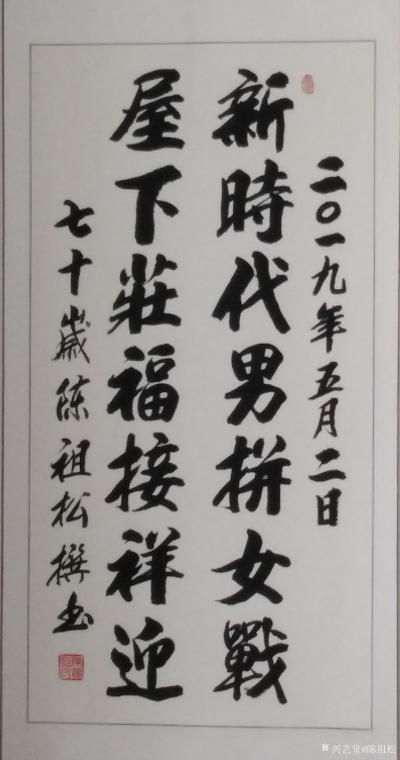 二〇一九年五月二日
新時代男拼女戰
屋下莊福接祥迎
七十歲陈祖松撰书
兴艺堂@陈祖松